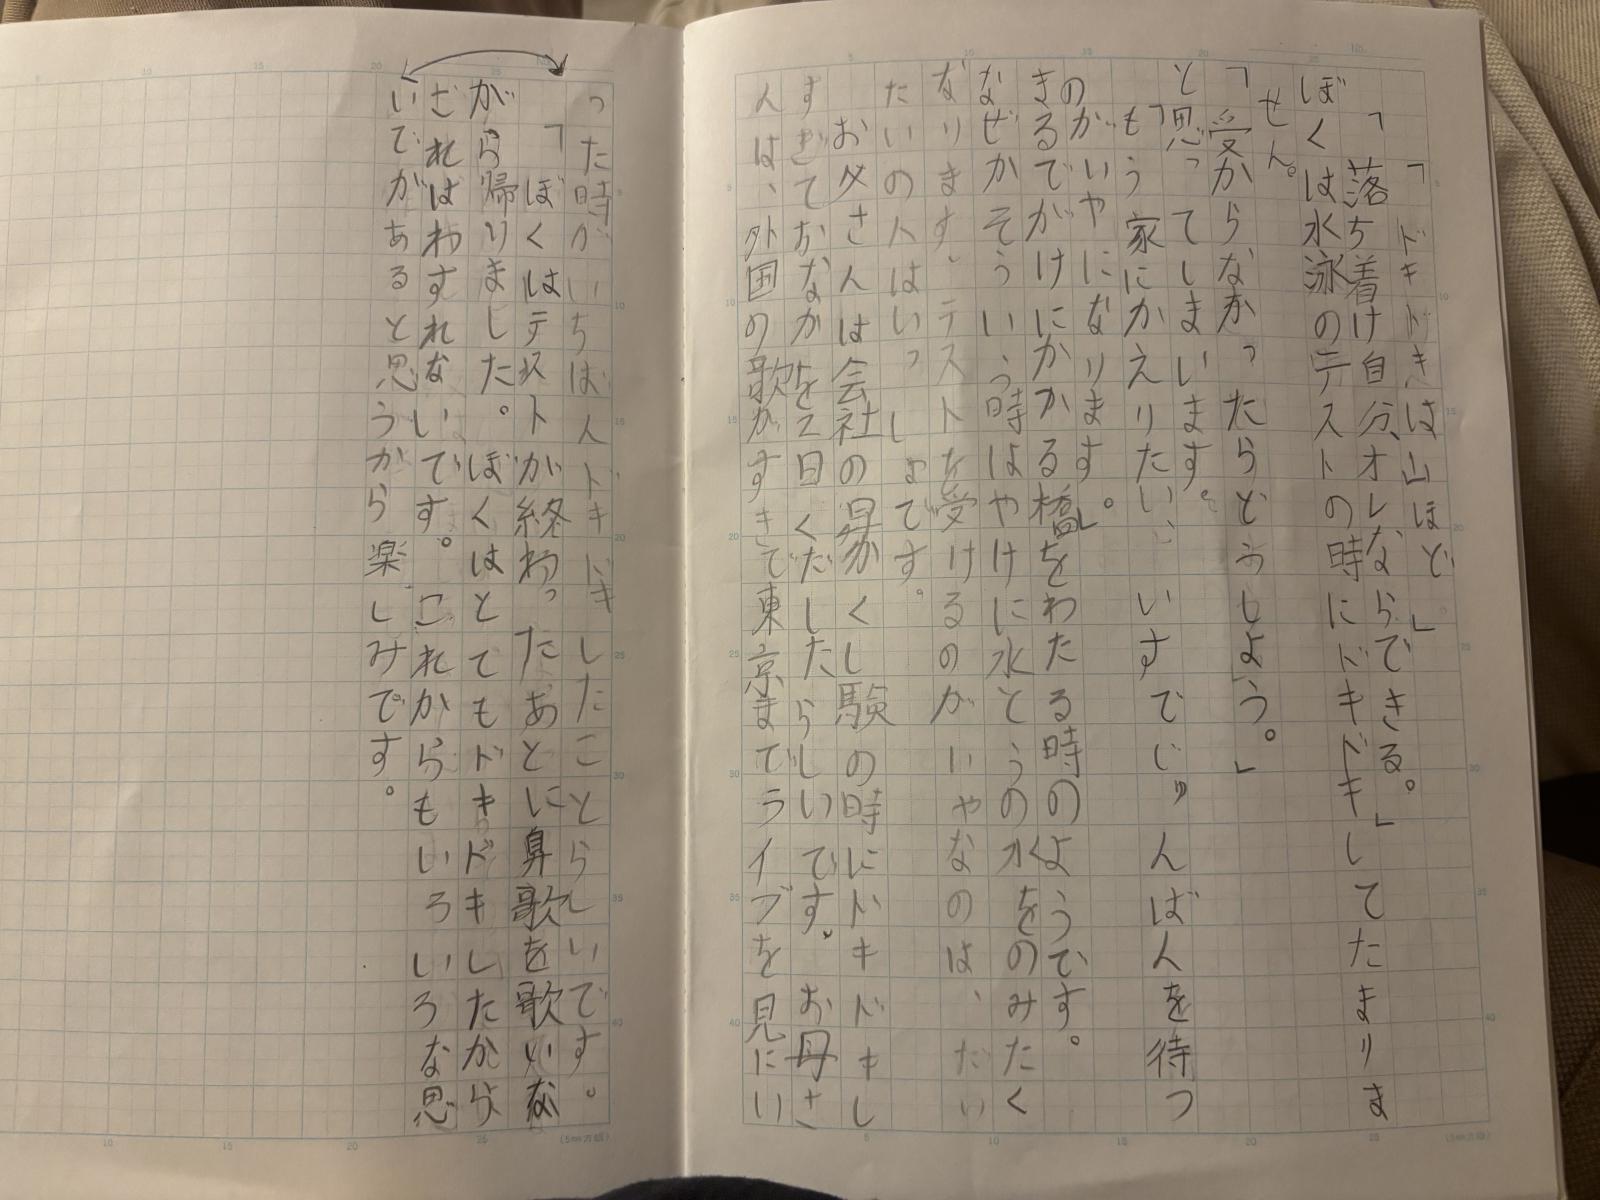 「ドキドキは山ほど」
「落ち着け自分、オレならできる。」
ぼくは水泳のテストの時にドキドキしてたまりま
せん。
「受からなかったらどうしよう。」
と思ってしまいます。
「もう家にかえりたい、いすでじゅんばんを待つ
のがいやになります。」
きるでがけにかかる橋をわたる時のようです。
なぜかそういう時はやけに水とうの水をのみたく
なります。テストを受けるのがいやなのは、だい
たいの人はいっしょです。
お父さんは会社の昇かくし験の時にドキドキし
すぎておなかを2日くだしたらしいです。お母さ
んは、外国の歌がすきで東京までライブを見にい
った時がいちばんドキドキしたことらしいです。
「ぼくはテストが終わったあとに鼻歌を歌いな
がら帰りました。ぼくはとてもドキドキしたから
ざればわすれないです。これからもいろいろな思
いでがあると思うから楽しみです。